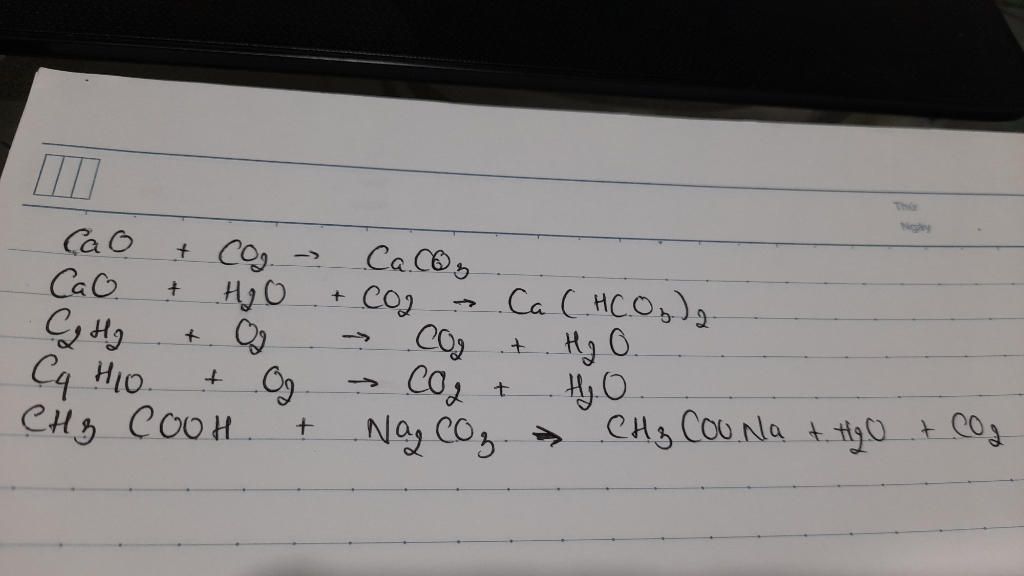 Thứ
Ngày
CaO + CO2 → CaCO3
CaO + H2O + CO2 → Ca(HCO3)2
C2H2 + O2 → CO2 + H2O
C4H10 + O2 → CO2 + H2O
CH3COOH + Na2CO3 → CH3COONa + H2O + CO2